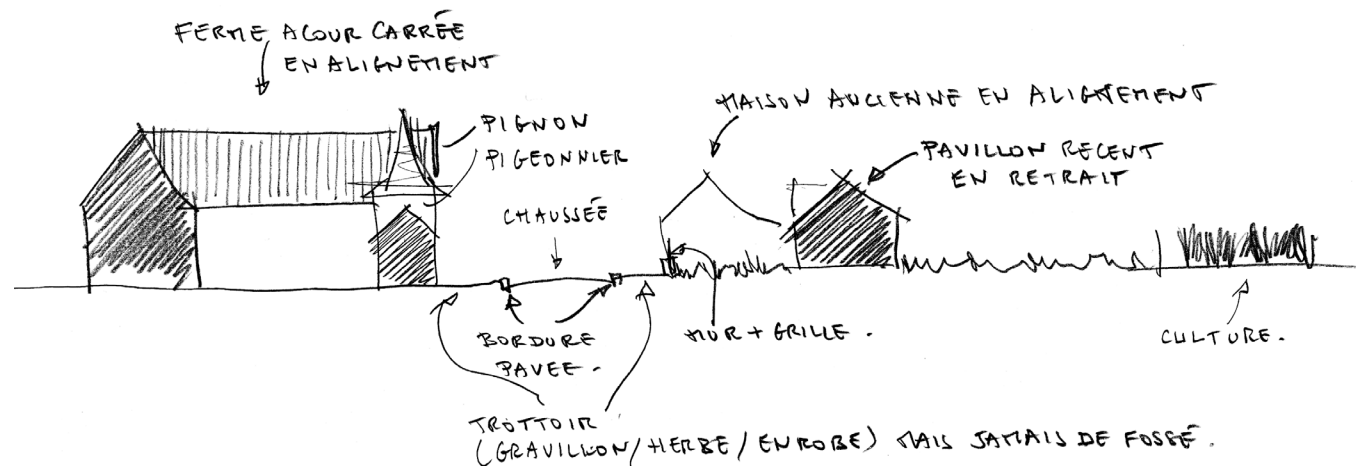 FERME A COUR CARRÉE
EN ALIGNEMENT
PIGNON
PIGEONNIER
CHAUSSÉE
MAISON ANCIENNE EN ALIGNEMENT
PAVILLON RECENT
EN RETRAIT
BORDURE
PAVEE.
MUR + GRILLE.
CULTURE.
TROTTOIR
(GRAVILLON/HERBE/ENROBE) MAIS JAMAIS DE FOSSÉ.